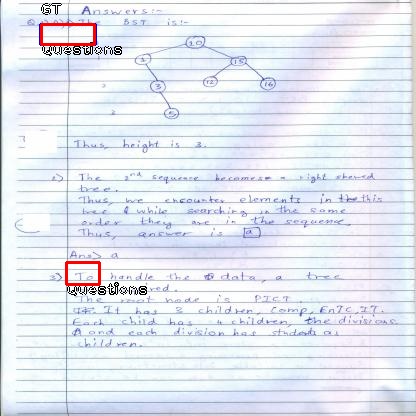 GT
Answers:-
The BST is:-
Questions
10
1 15
3 12 16
5
Thus, height is 3.
2) The 2nd sequence becomes a right skewed
tree.
Thus, we encounter elements in the this
tree & while searching in the same
order they are in the sequence.
Thus, answer is a
Ans> a
3) To handle the data, a tree
Questions
The root node is PICT.
It has 3 children, Comp, EnTC, IT.
Each child has 4 children, the divisions
and each division has students as
children.